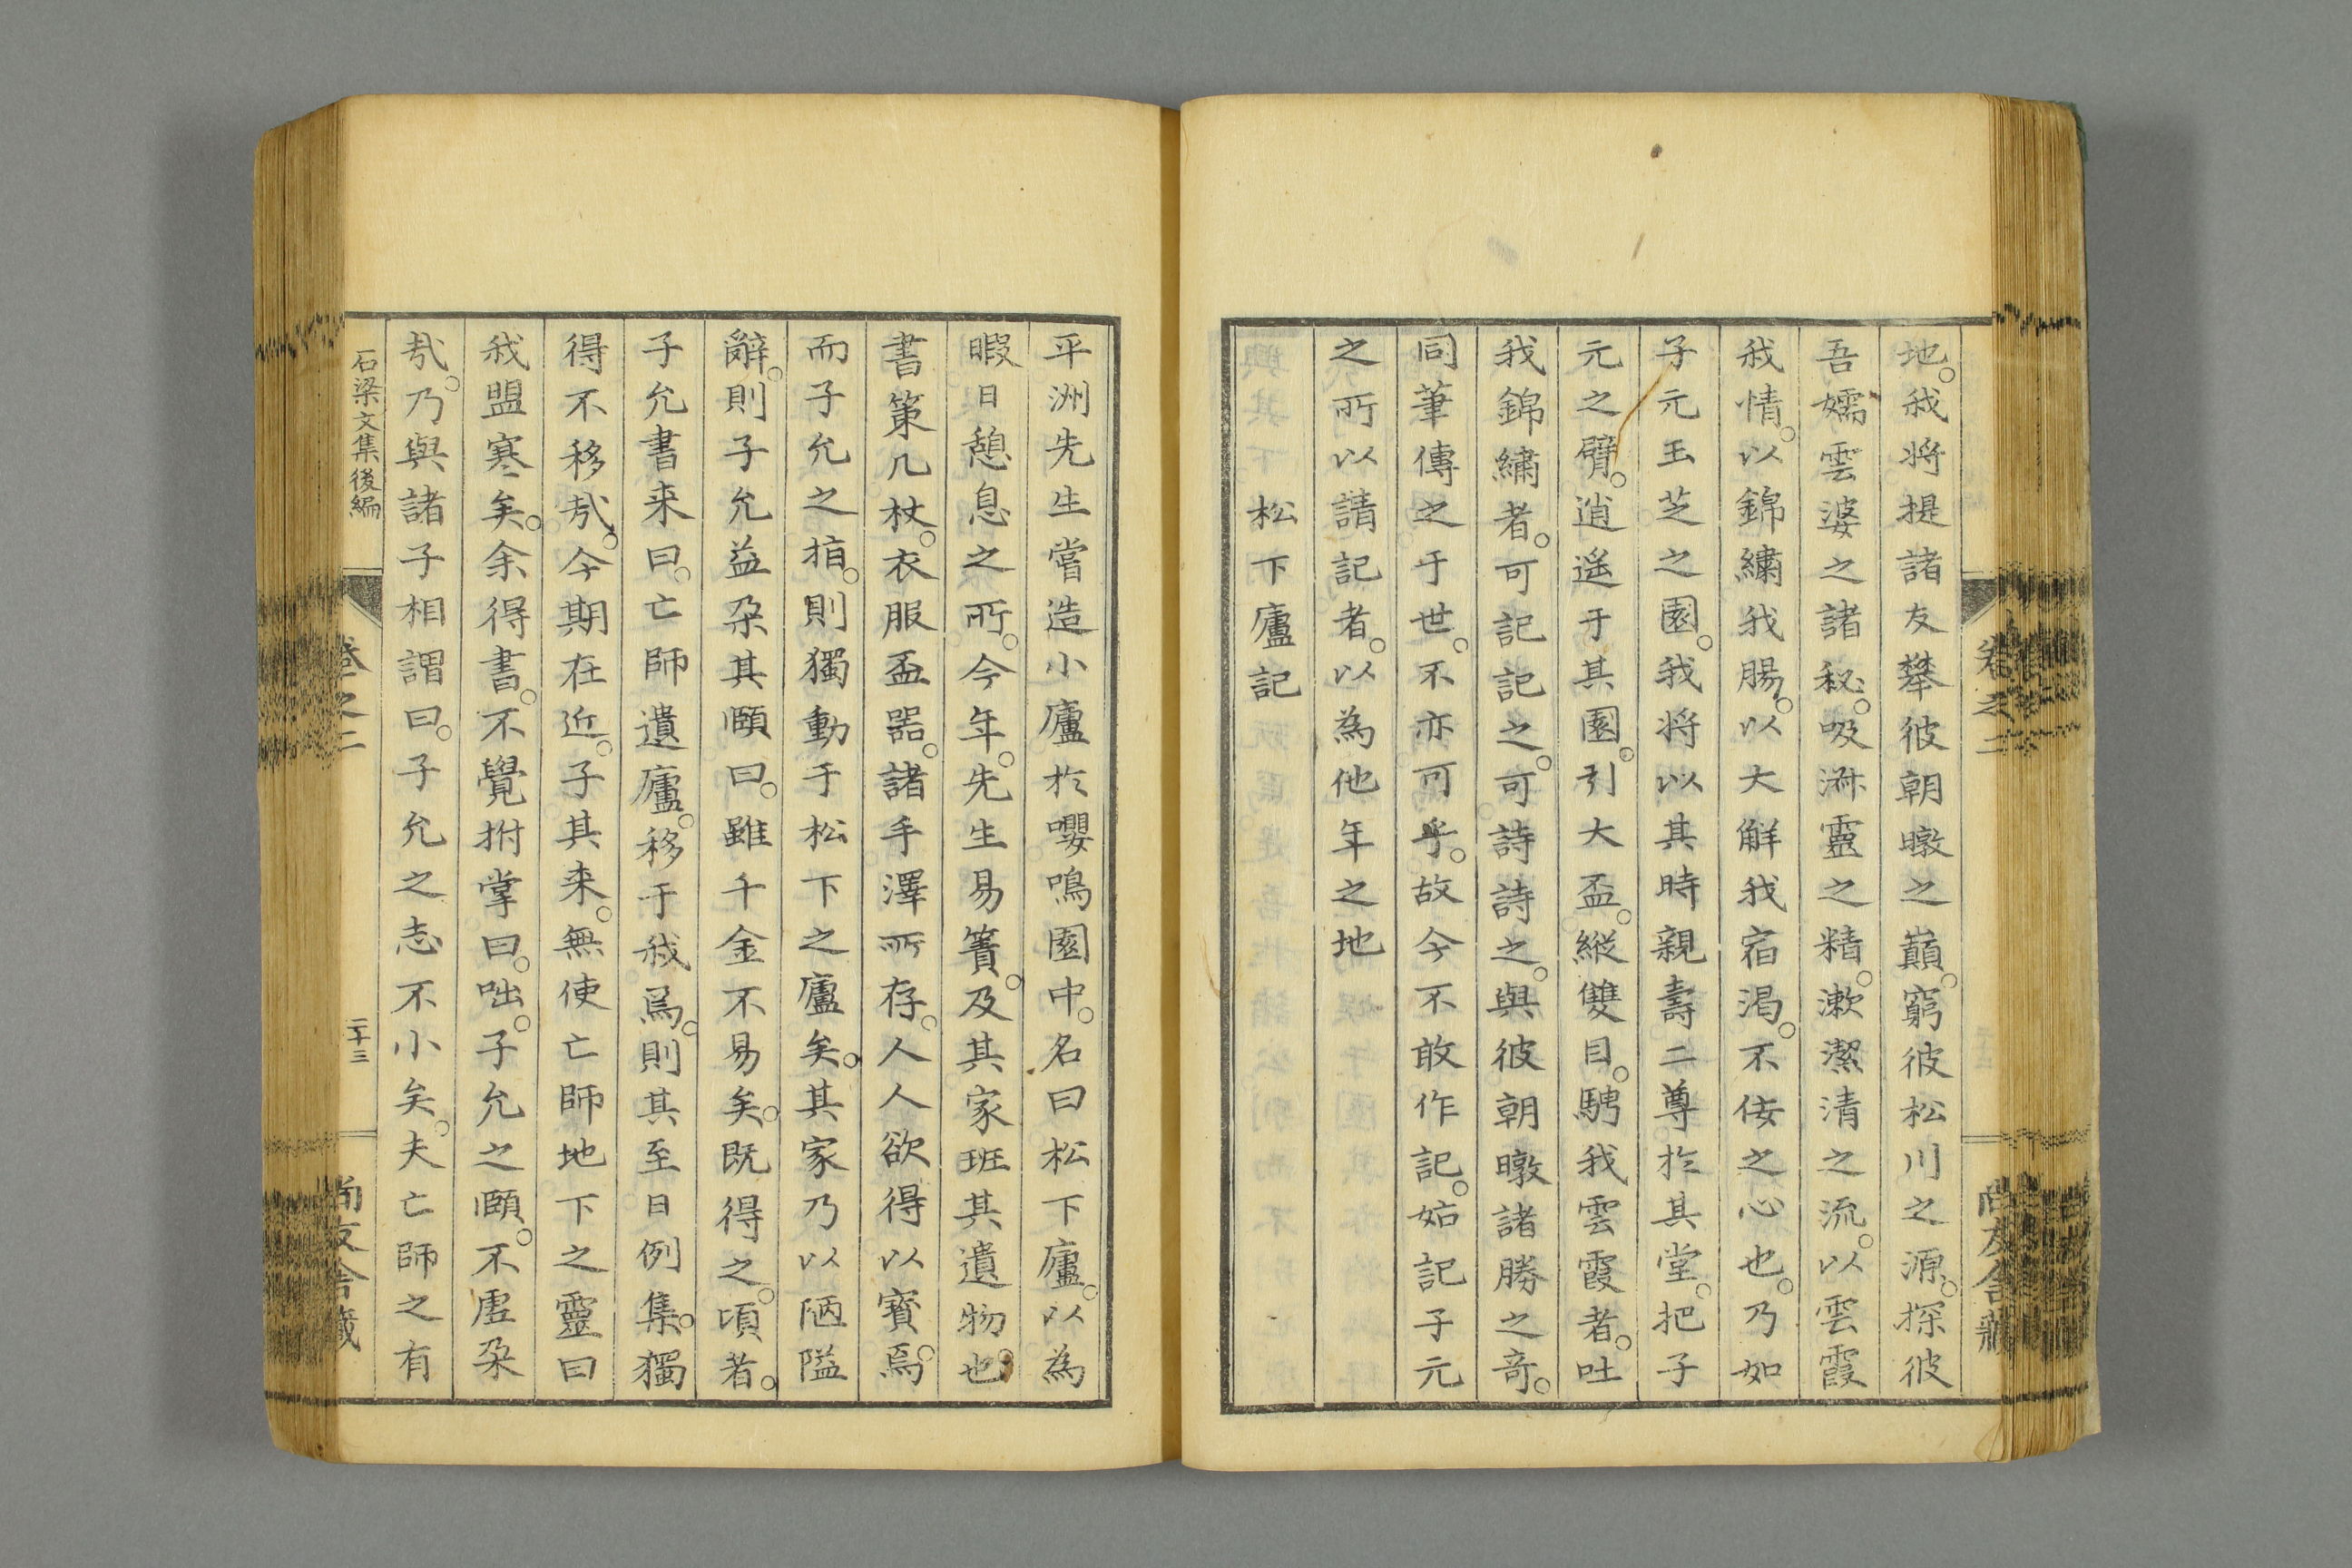 地。我将提諸友攀彼朝暾之巓。窮彼松川之源。探彼
吾嬬雲婆之諸秘。吸泲靈之精。漱潔清之流。以雲霞
我情。以錦繡我腸。以大觧我宿渇。不侫之心也。乃如
子元玉芝之園。我将以其時親壽二尊於其堂。把子
元之臂。逍遥于其園。引大盃。縦雙目。騁我雲霞者。吐
我錦繡者。可記記之。可詩詩之。與彼朝暾諸勝之竒。
同筆傳之于世。不亦可乎。故今不敢作記。姑記子元
之所以請記者。以為他年之地
松下廬記
卷之二
尚友舎藏
平洲先生嘗造小廬於嚶鳴園中。名曰松下廬。以為
暇日憩息之所。今年。先生易簀。及其家班其遺物也。
書策几杖。衣服盃器。諸手澤所存。人人欲得以寳焉。
而子允之指。則獨動于松下之廬矣。其家乃以陋隘
辭。則子允益朶其頤曰。雖千金不易矣。既得之。頃者。
子允書来曰。亡師遺廬。移于我焉。則其至日例集。獨
得不移㢤。今期在近。子其来。無使亡師地下之靈曰
我盟寒矣。余得書。不覺拊掌曰。咄。子允之頤。不虚朶
㢤。乃與諸子相謂曰。子允之志不小矣。夫亡師之有
石梁文集後編
卷之二
二十三
尚友舎藏